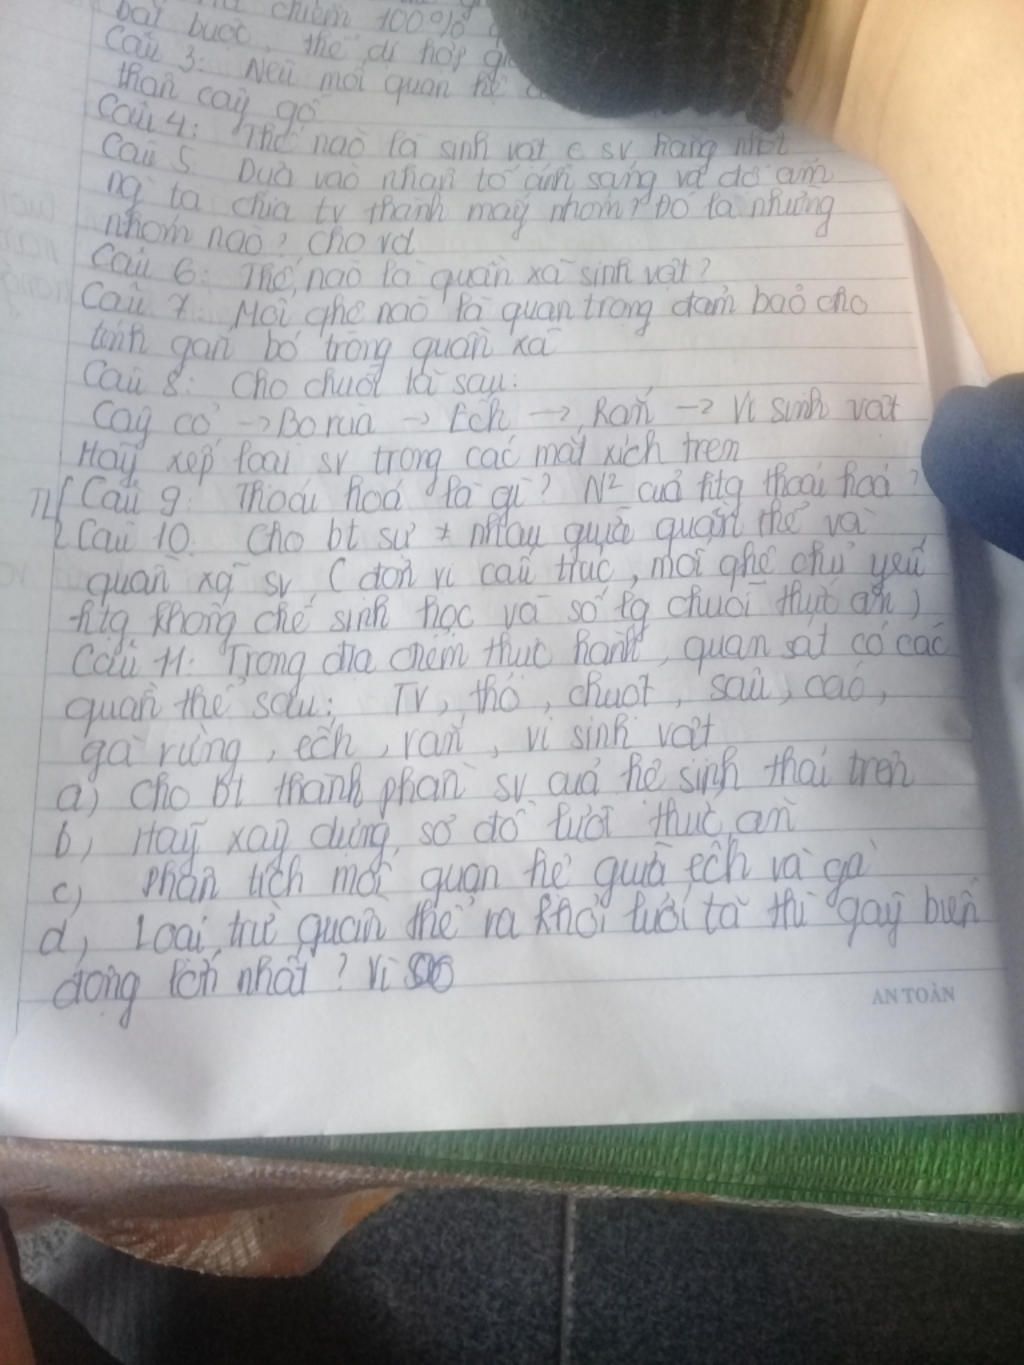 chiếm 100%
bắt buộc, thể dị hợp
Câu 3: Nêu mối quan hệ
thân cây gỗ
Câu 4: Thế nào là sinh vật sv hằng nhiệt
Câu 5 Dựa vào nhân tố ánh sáng và độ ẩm
ng ta chia tv thành mấy nhóm? Đó là những
nhóm nào? cho vd
Câu 6: Thế nào là quần xã sinh vật?
Câu 7: Mối qhệ nào là quan trọng đảm bảo cho
tính gắn bó trong quần xã
Câu 8: Cho chuỗi tă sau:
Cây cỏ → Bọ rùa → Ếch → Rắn → Vi sinh vật
Hãy xếp loại sv trong các mắt xích trên
TL Câu 9: Thoái hoá là gì? N² của htg thoái hoá?
Câu 10. Cho bt sự ≠ nhau giữa quần thể và
quần xã sv (đơn vị cấu trúc, mối qhệ chủ yếu
htg khống chế sinh học và số lg chuỗi thức ăn)
Câu 11: Trong địa điểm thực hành, quan sát có các
quần thể sau: TV, thỏ, chuột, sâu, cáo,
gà rừng, ếch, rắn, vi sinh vật
a) Cho bt thành phần sv của hệ sinh thái trên
b, Hãy xây dựng sơ đồ lưới thức ăn
c) Phân tích mối quan hệ giữa ếch và gà
d, Loại trừ quần thể ra khỏi lưới tă thì gây biến
động lớn nhất? Vì
AN TOÀN